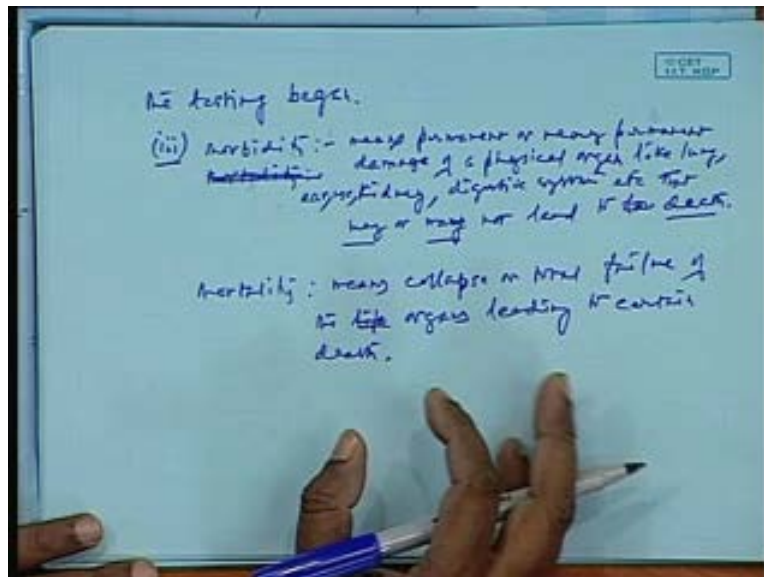 © CET
I.I.T. KGP
the testing began.
(iii) Morbidity :- means permanent or nearly permanent
damage of a physical organ like lung,
kidney, digestive system etc that
may or may not lead to death.
Mortality : means collapse or total failure of
the life organs leading to certain
death.